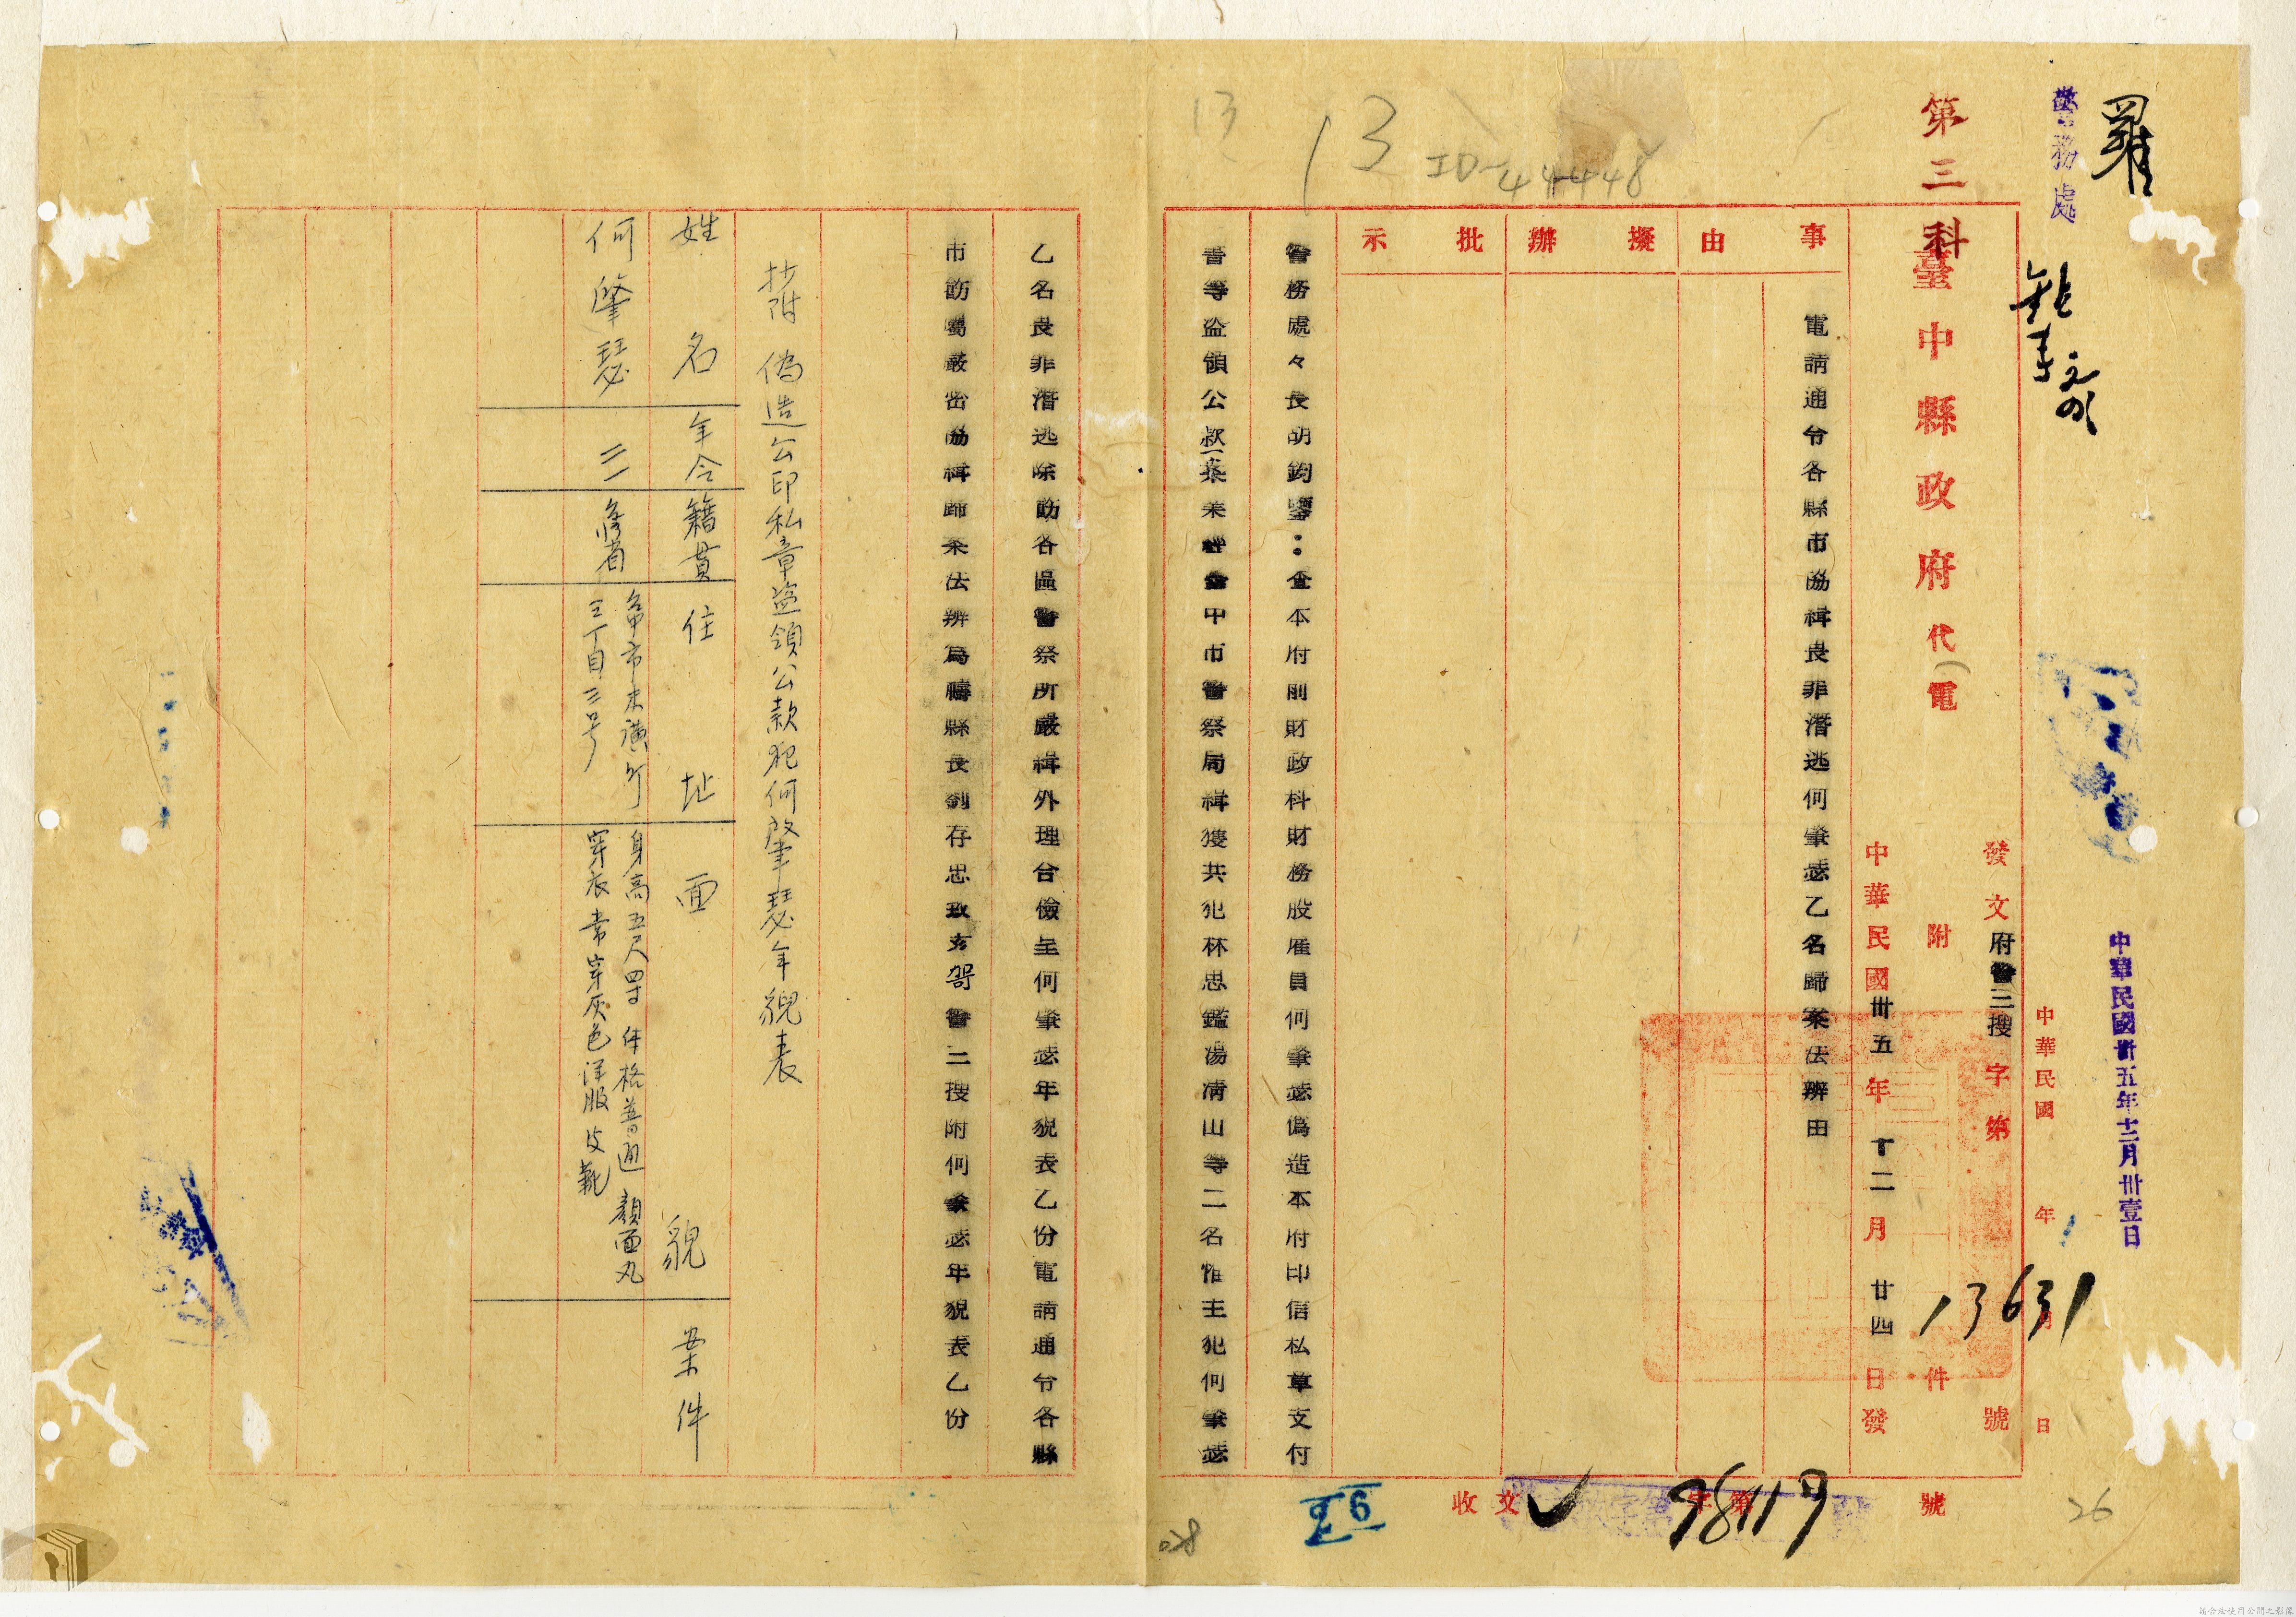 羅
警務處
中華民國卅五年十二月卅壹日
中華民國 年 月 日
第三科
臺中縣政府代電
發文府警三搜字第13631號
附 件
中華民國卅五年十二月廿四日發
事由
擬辦
批示
電請通令各縣市協緝長非潛逃何肇瑟乙名歸案法辨由
警務處々長胡鈞鑒：查本府前財政科財務股雇員何肇瑟偽造本府印信私章支付
書等盜領公款一案業經臺中市警察局緝獲共犯林忠鑑湯清山等二名惟主犯何肇瑟
乙名長非潛逃除飭各區警察所嚴緝外理合儉呈何肇瑟年貌表乙份電請通令各縣
市飭屬嚴密協緝歸案法辨為禱縣長劉存忠致亥哿警三搜附何肇瑟年貌表乙份
抄附 偽造公印私章盜領公款犯何肇瑟年貌表
姓名 年令 籍貫 住址 面貌 案件
何肇瑟 二二 本省 台中市末廣町
三丁目三号
身高五尺四寸 体格普通 顏面丸
穿衣常穿灰色洋服皮靴
收文 字第98117號
13
13
ID-44448
26
028